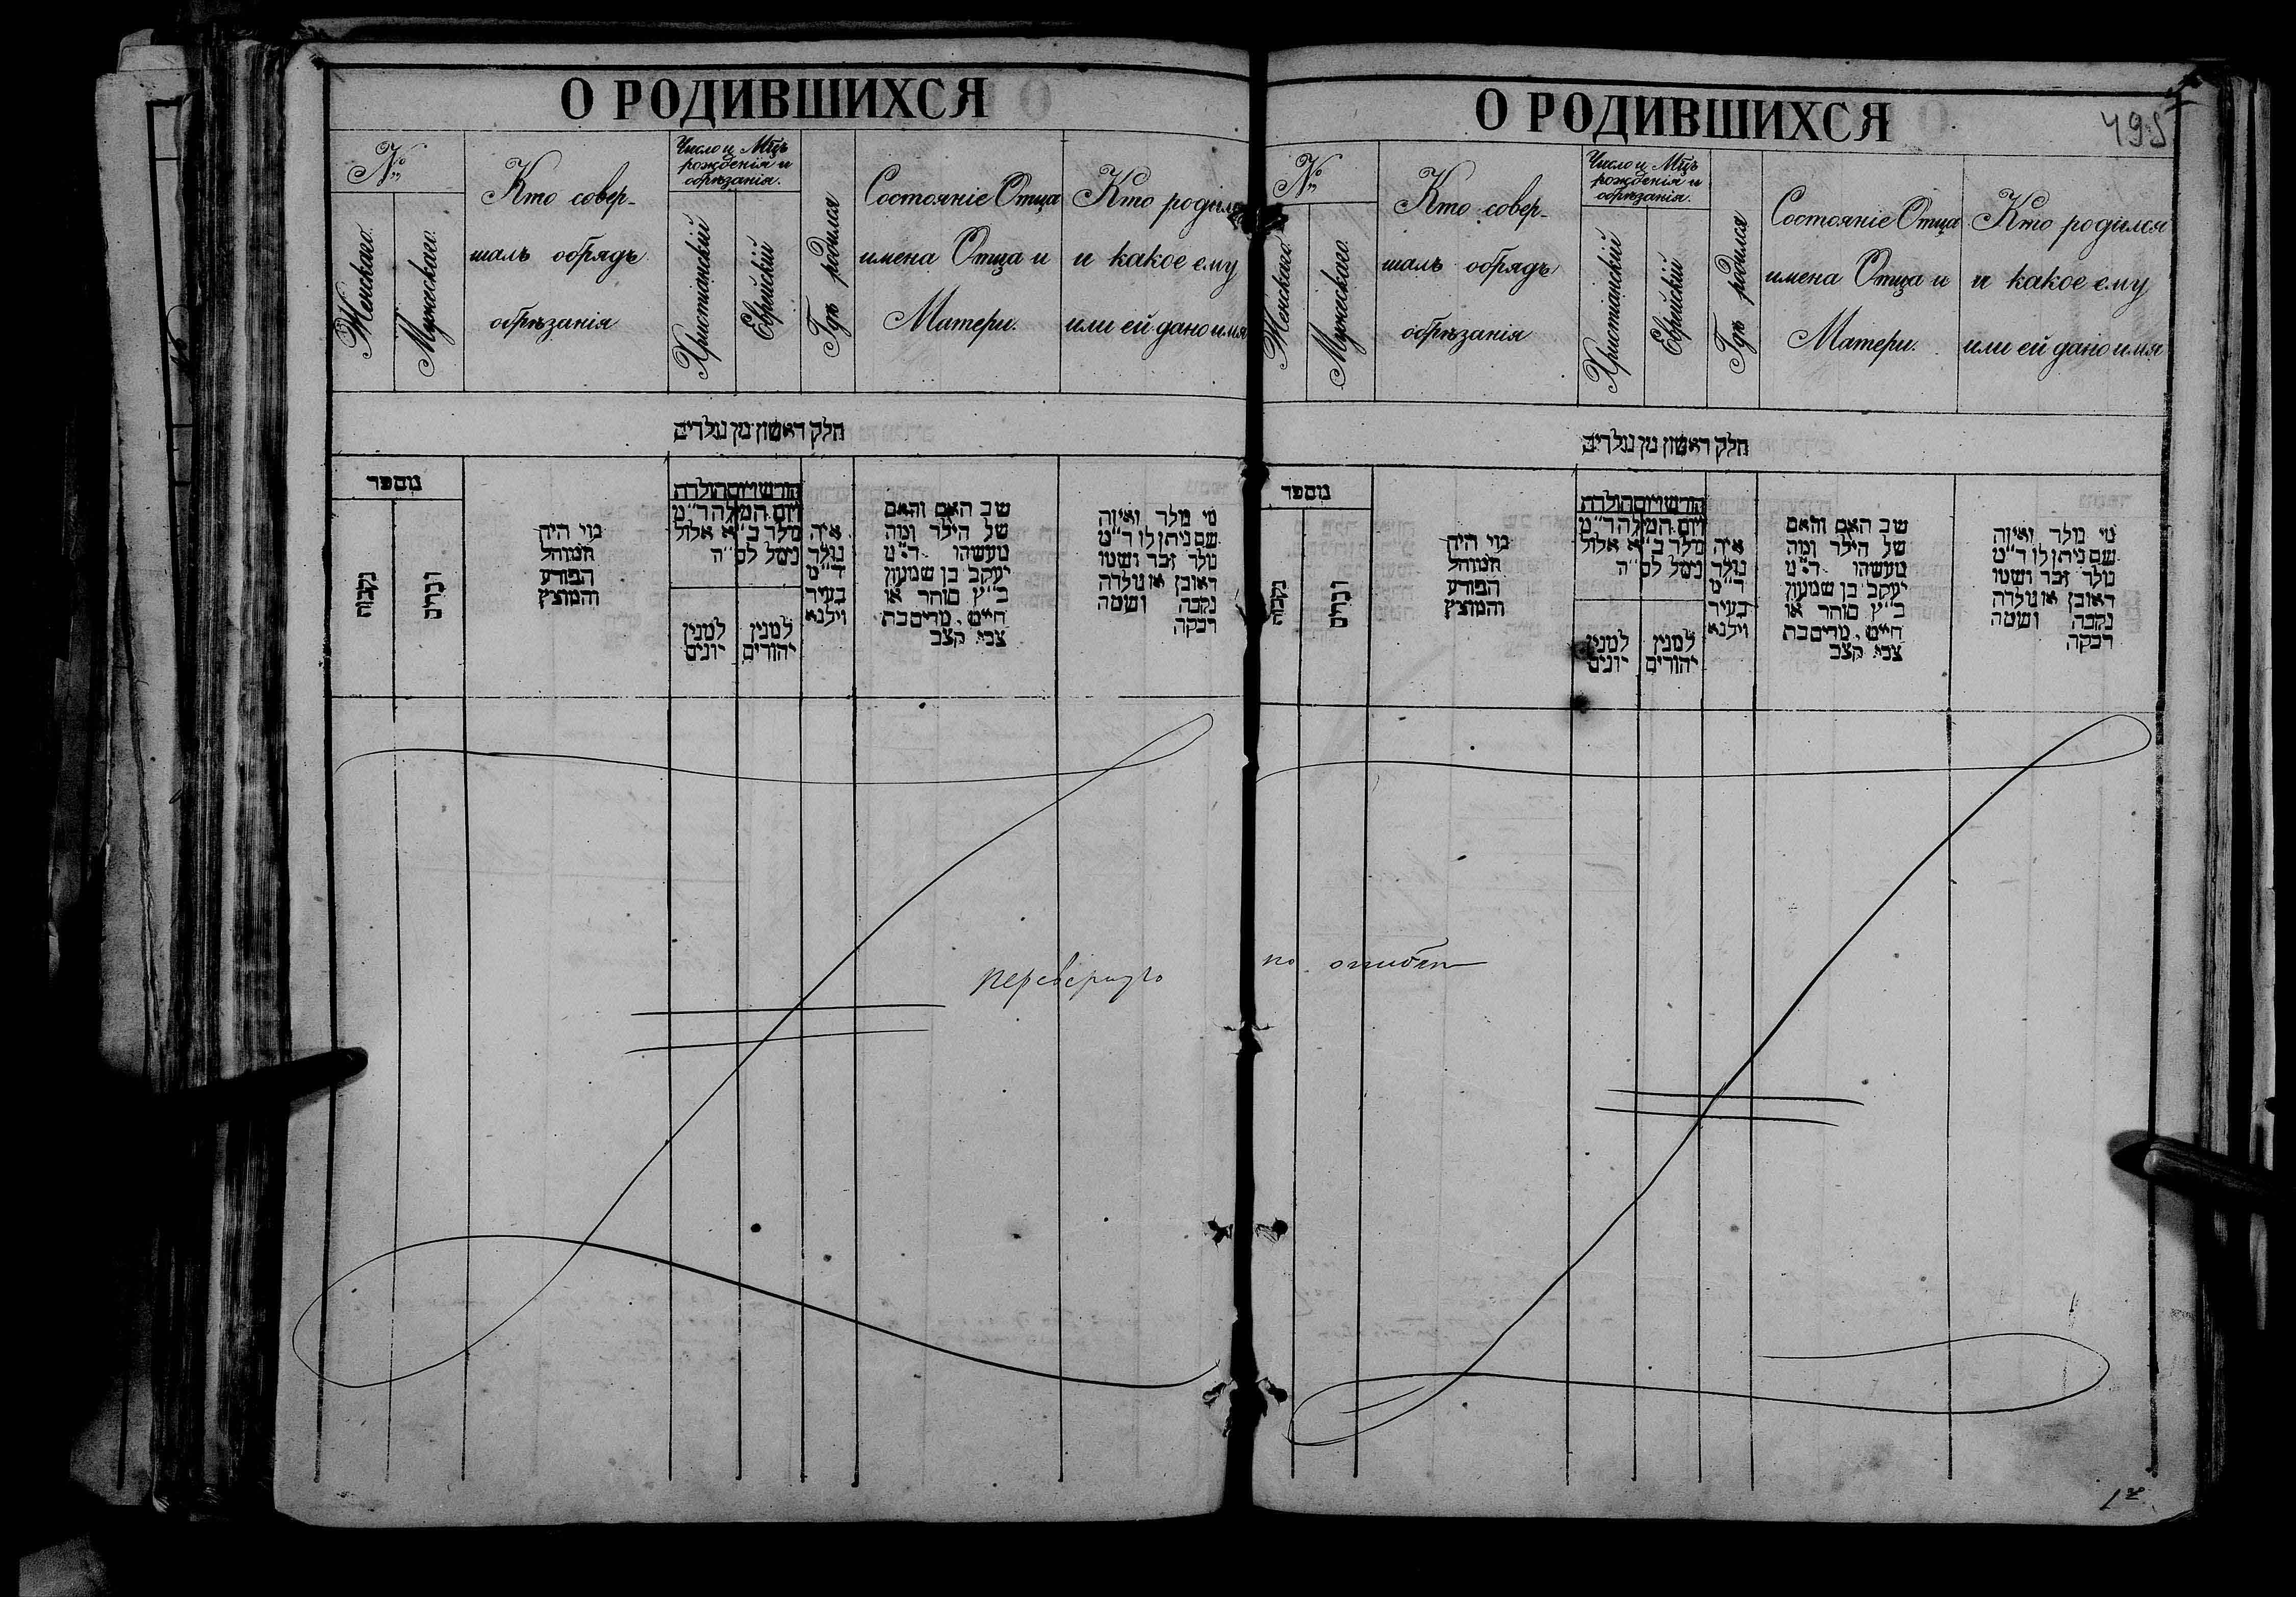 О РОДИВШИХСЯ
№
Женскаго.
Мужескаго.
Кто совер-
шалъ обрядъ
обрѣзанія
Число и Мцъ
рожденія и
обрѣзанія.
Христіанскій
Еврейскій
Гдѣ родился
Состояніе Отца
имена Отца и
Матери.
Кто родился
и какое ему
или ей дано имя
חלק ראשון מן נולדים
מוספר
נקבות
זכרים
מי היה
המוהל
הפורע
והמוצץ
חודש ויום הולדת
ויום המילה ד״מ
נולד כ״א אלול
נימל לס״ה
למנין
יונים
למנין
יהודים
איה
נולד
ד״מ
בעיר
וילנא
שם האב והאם
של הילד ומה
מעשהו ד״מ
יעקב בן שמעון
כ״ץ סוחר או
חייט, מרים בת
צבי קצב
מי נולד ואיזה
שם ניתן לו ד״מ
נולד זכר ושמו
ראובן או נולדה
נקבה ושמה
רבקה
перевернуто
О РОДИВШИХСЯ
495
№
Женскаго.
Мужескаго.
Кто совер-
шалъ обрядъ
обрѣзанія
Число и Мцъ
рожденія и
обрѣзанія.
Христіанскій
Еврейскій
Гдѣ родился
Состояніе Отца
имена Отца и
Матери.
Кто родился
и какое ему
или ей дано имя
חלק ראשון מן נולדים
מוספר
נקבות
זכרים
מי היה
המוהל
הפורע
והמוצץ
חודש ויום הולדת
ויום המילה ד״מ
נולד כ״א אלול
נימל לס״ה
למנין
יונים
למנין
יהודים
איה
נולד
ד״מ
בעיר
וילנא
שם האב והאם
של הילד ומה
מעשהו ד״מ
יעקב בן שמעון
כ״ץ סוחר או
חייט, מרים בת
צבי קצב
מי נולד ואיזה
שם ניתן לו ד״מ
נולד זכר ושמו
ראובן או נולדה
נקבה ושמה
רבקה
по ошибкѣ